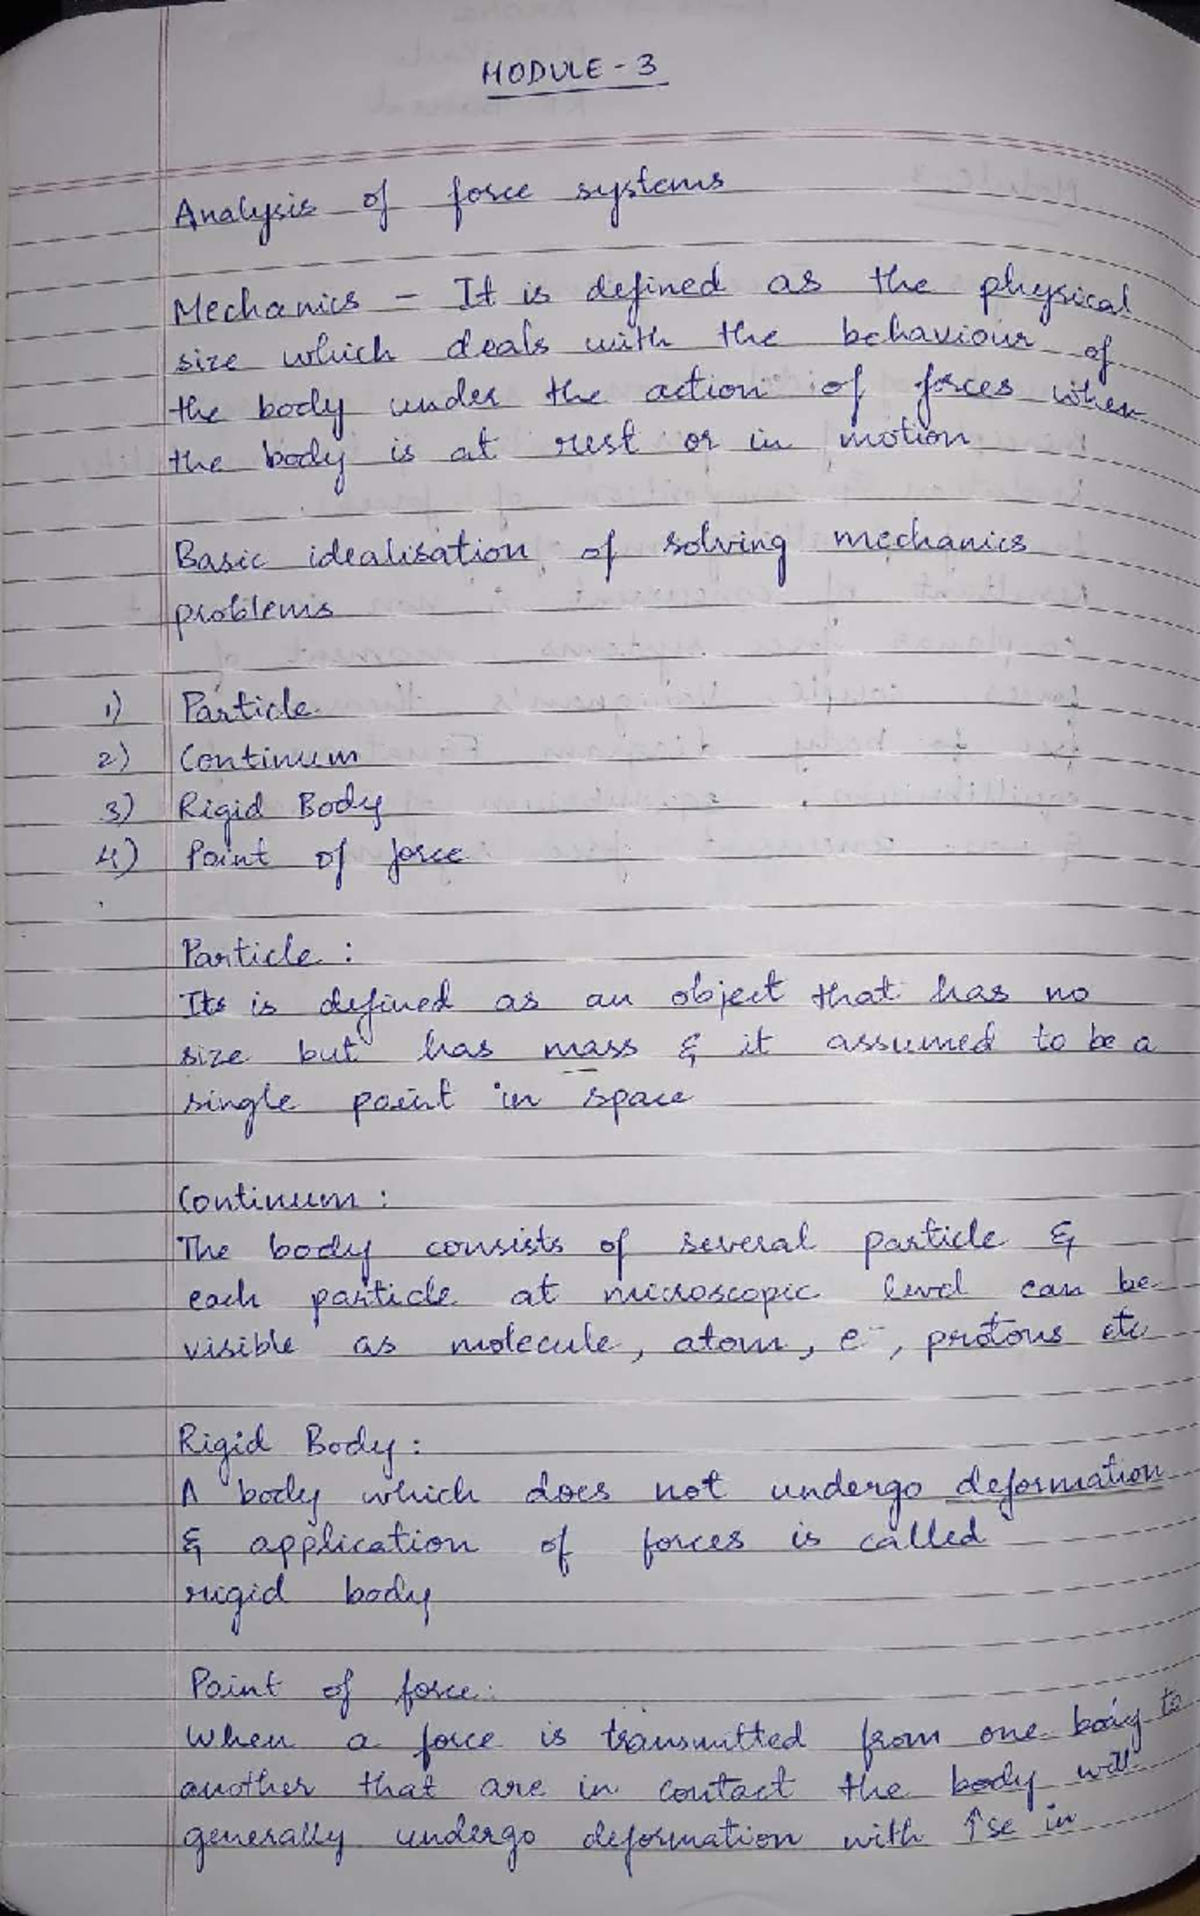 MODULE - 3
Analysis of force systems
Mechanics - It is defined as the physical
size which deals with the behaviour of
the body under the action of forces when
the body is at rest or in motion
Basic idealisation of solving mechanics
problems
1) Particle
2) Continuum
3) Rigid Body
4) Point of force
Particle :
Its is defined as an object that has no
size but has mass & it assumed to be a
single point in space
Continuum :
The body consists of several particle &
each particle at microscopic level can be
visible as molecule, atom, e⁻, protons etc
Rigid Body :
A body which does not undergo deformation
& application of forces is called
rigid body
Point of force :
When a force is transmitted from one body to
another that are in contact the body will
generally undergo deformation with ↑se in